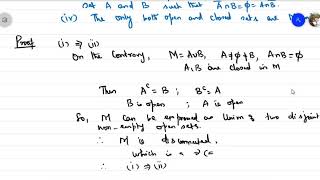 set A and B such that A̅∩B=ϕ=A∩B̅.
(iv) The only both open and closed sets are
Proof (i) ⇒ (ii)
On the Contrary, M = A∪B, A≠ϕ≠B, A∩B=ϕ
A,B are closed in M
Then Aᶜ = B ; Bᶜ = A
B is open ; A is open
So, M can be expressed as Union of two disjoint
non-empty open sets.
∴ M is disconnected,
which is a
∴ (i) ⇒ (ii)